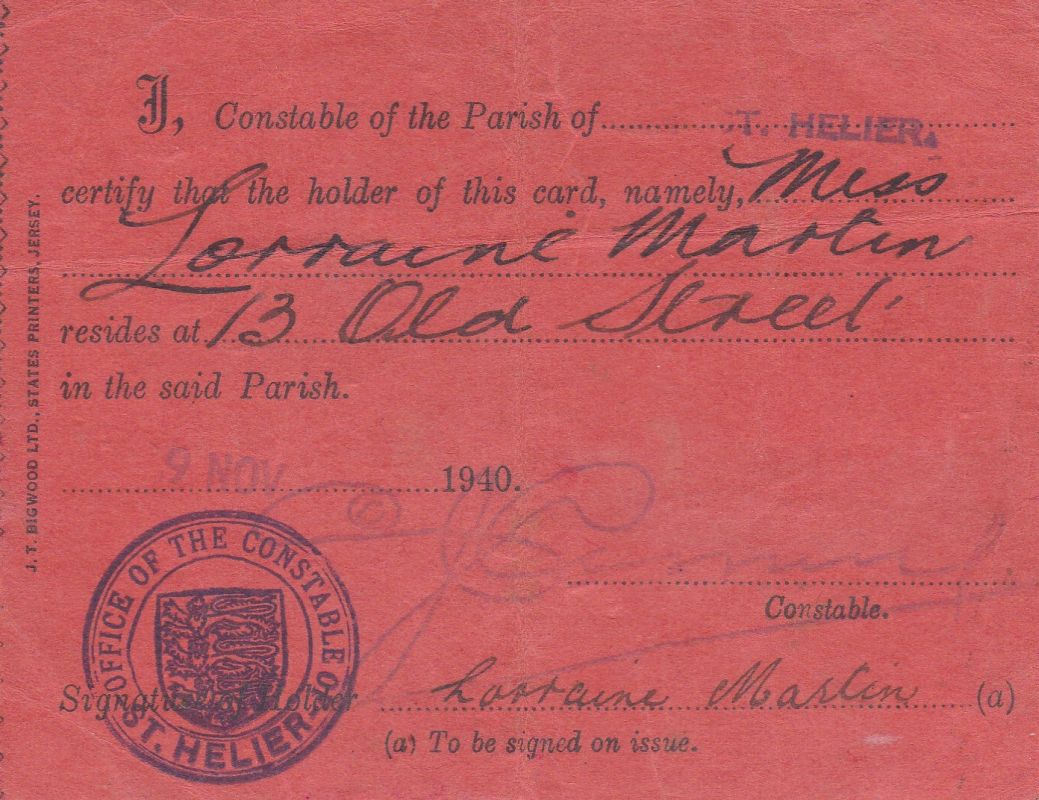 I, Constable of the Parish of ST. HELIER.
certify that the holder of this card, namely, Miss
Lorraine Martin
resides at 13 Old Street
in the said Parish.
9 NOV 1940.
Constable.
Signature of Holder Lorraine Martin (a)
(a) To be signed on issue.
OFFICE OF THE CONSTABLE OF ST. HELIER
J. T. BIGWOOD LTD., STATES PRINTERS, JERSEY.